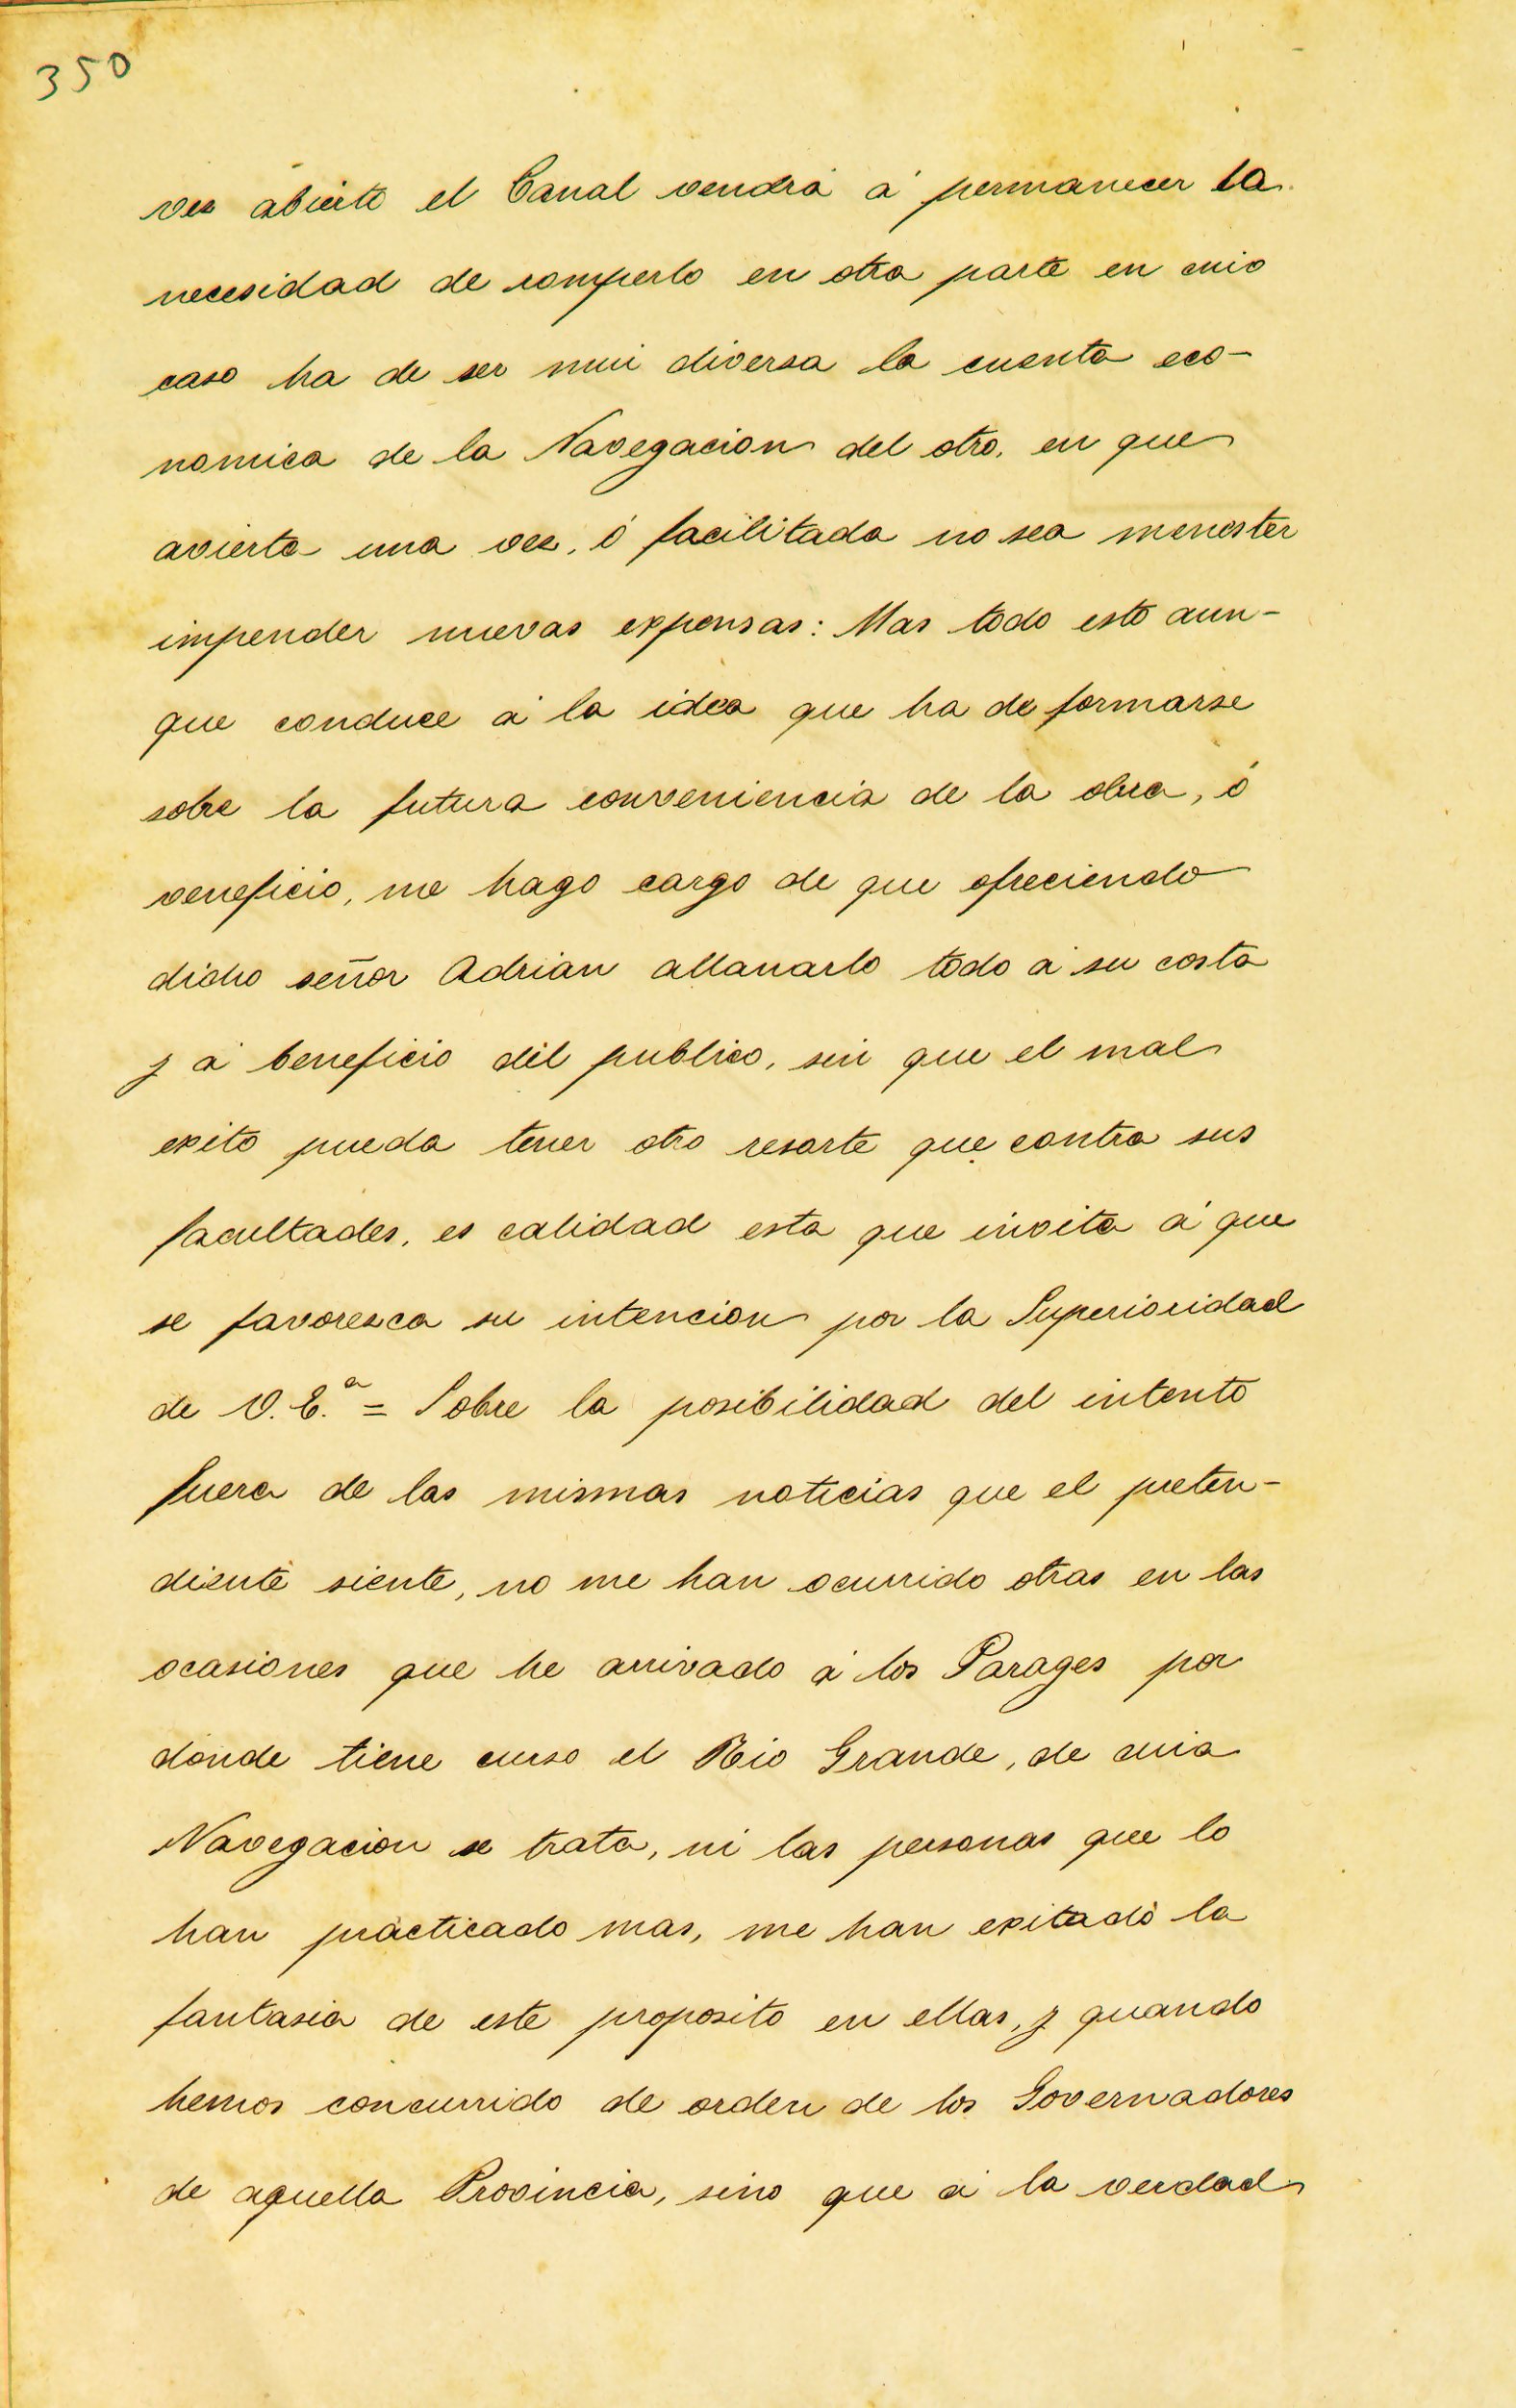 350
ves abierto el Canal vendrá á permanecer la
necesidad de romperlo en otra parte en cuio
caso ha de ser mui diversa la cuenta eco-
nomica de la Navegacion del otro, en que
avierta una vez, ó facilitada no sea menester
impender nuevas expensas: Mas todo esto aun-
que conduce á la idea que ha de formarse
sobre la futura conveniencia de la obra, ó
veneficio, me hago cargo de que ofreciendo
dicho señor Adrian allanarlo todo á su costa
y á beneficio del publico, sin que el mal
exito pueda tener otro resorte que contra sus
facultades, es calidad esta que invita á que
se favoresca su intencion por la Superioridad
de V. E.ª = Sobre la posibilidad del intento
fuera de las mismas noticias que el preten-
diente siente, no me han ocurrido otras en las
ocasiones que he arrivado á los Parages por
donde tiene curso el Rio Grande, de cuia
Navegacion se trata, ni las personas que lo
han practicado mas, me han exitado la
fantasia de este proposito en ellas, y quando
hemos concurrido de orden de los Governadores
de aquella Provincia, sino que á la verdad